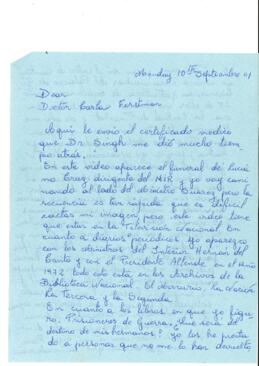 Monday 10th September 01
Dear
Doctor Carla Ferstman
Aquí le envío el certificado medico
que Dr. Singh me dió mucho tiem
po atrás.
En este video aparece el funeral de Luci
no Cruz dirigente del MIR y yo voy cami
nando al lado del ministro Suarez pero la
secuencia es tan rápida que es dificil
mi imagen pero este video tiene
que estar en la Television Nacional. En
cuanto a diarios periodicos yo aparezco
con los ministros del Interior Hernan del
Canto y con el Presidente Allende en el año
1972 todo esto está en los Archivos de la
Biblioteca Nacional. El Mercurio, La Nación
La Tercera y la Segunda.
En cuanto a los libros en que yo figu
ro. Prisioneros de Guerra, ¿Que será del
destino de mis hermanos? yo los he presta
do a personas que no me lo han devuelto